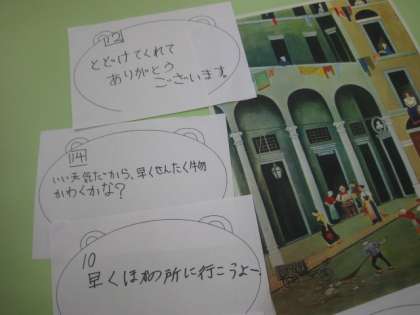 12
とどけてくれて
ありがとう
ございます。
14
いい天気だから、早くせんたく物
かわくかな?
10
早くほかの所に行こうよー